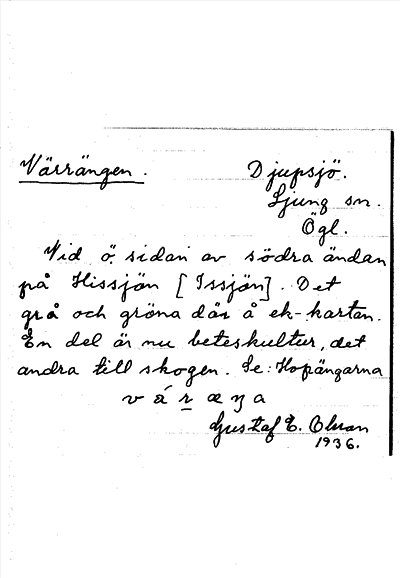 Värrängen. Djupsjö.
Ljung sn.
Ögl.
Vid ö. sidan av södra ändan
på Hissjön [Issjön]. Det
grå och gröna där å ek-kartan.
En del är nu beteskultur, det
andra till skogen. Se: Hopängarna
v á r æ ŋ a
Gustaf E. Olsson
1936.